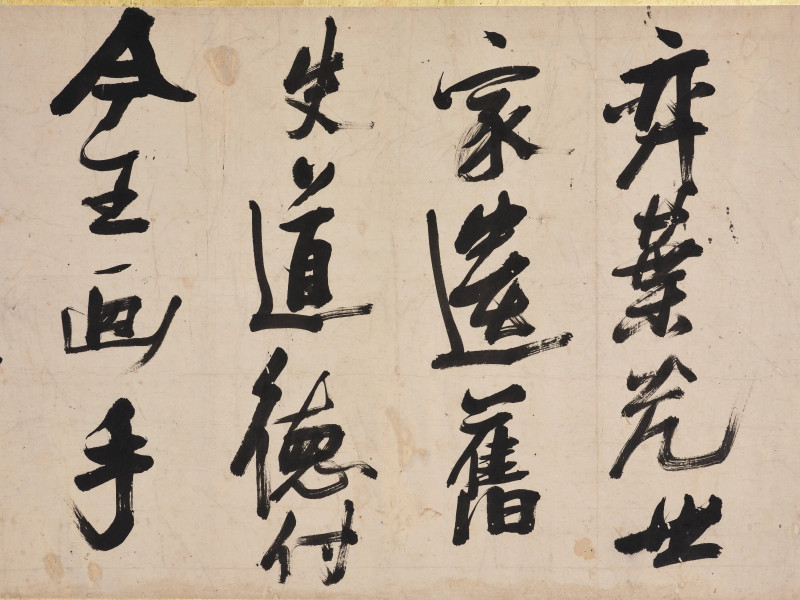 弈葉光世
家遺舊
史道德付
今王画手